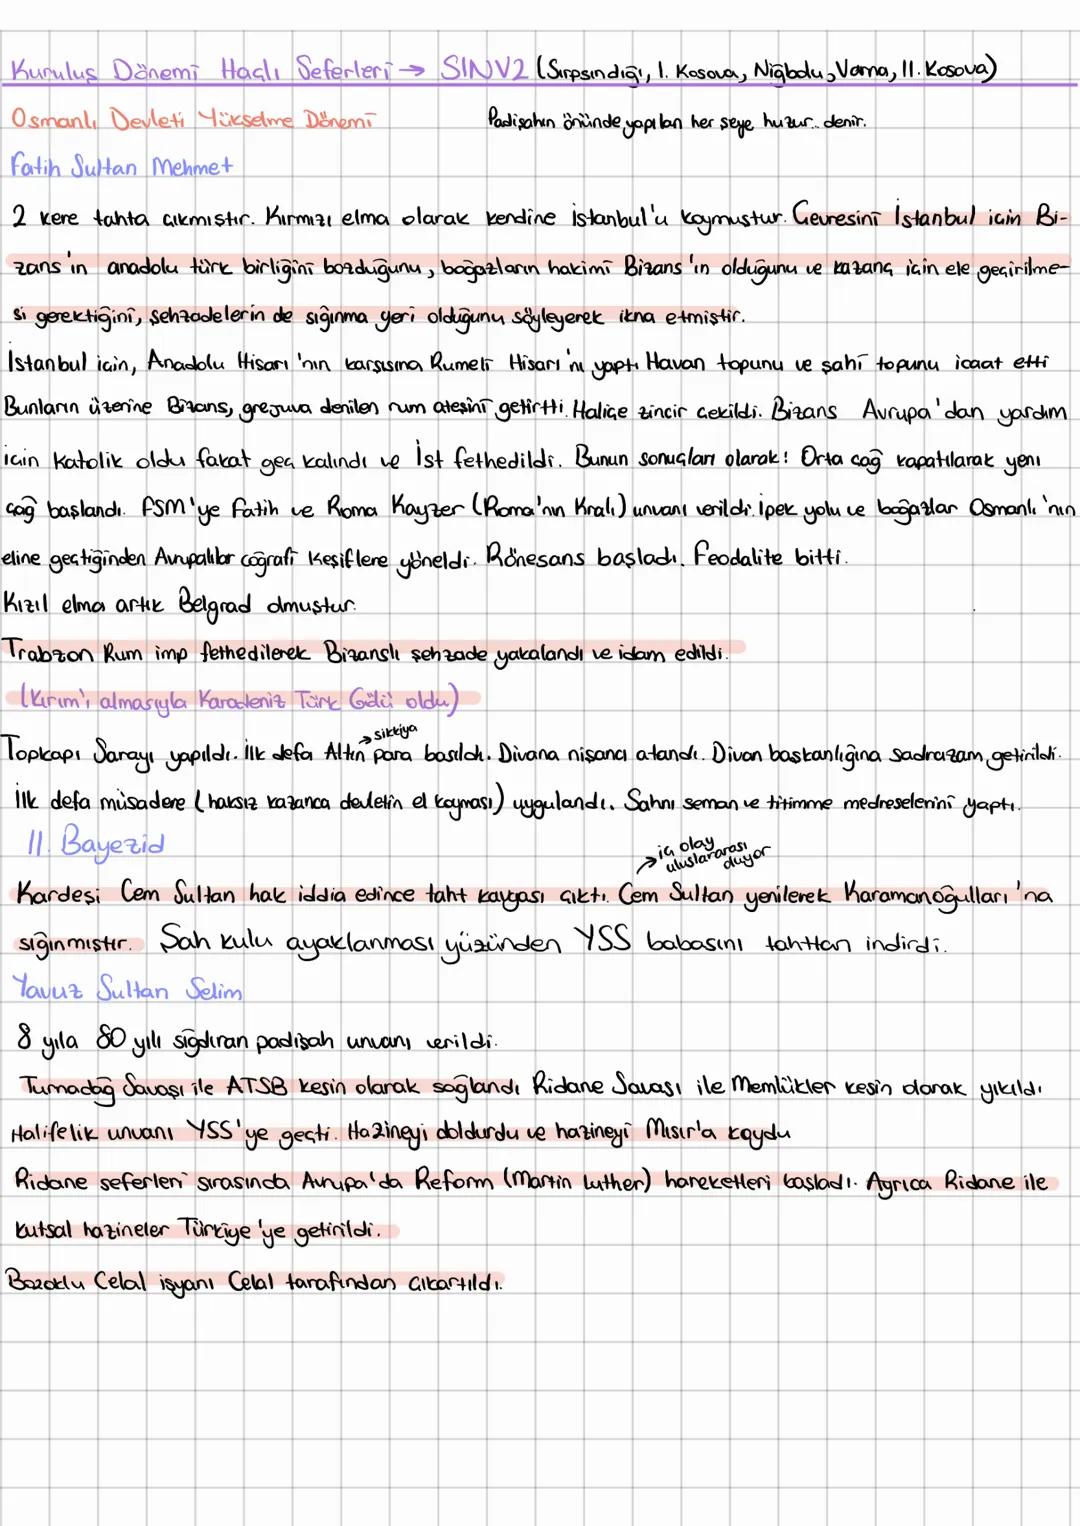 Kuruluş Dönemi Haçlı Seferleri → SINV2 (Sırpsındığı, I. Kosova, Niğbolu, Varna, II. Kosova)
Osmanlı Devleti Yükselme Dönemi
Padişahın önünde yapılan her şeye huzur.. denir.
Fatih Sultan Mehmet
2 kere tahta çıkmıştır. Kırmızı elma olarak kendine İstanbul'u koymuştur. Çevresini İstanbul için Bi-
zans'ın anadolu türk birliğini bozduğunu, boğazların hakimi Bizans'ın olduğunu ve kazanç için ele geçirilme-
si gerektiğini, şehzadelerin de sığınma yeri olduğunu söyleyerek ikna etmiştir.
İstanbul için, Anadolu Hisarı'nın karşısına Rumeli Hisarı'nı yaptı Havan topunu ve şahi topunu icaat etti
Bunların üzerine Bizans, grejuva denilen rum ateşini getirtti. Haliçe zincir çekildi. Bizans Avrupa'dan yardım
için Katolik oldu fakat geç kalındı ve İst fethedildi. Bunun sonuçları olarak: Orta çağ kapatılarak yeni
çağ başlandı. FSM'ye Fatih ve Roma Kayzer (Roma'nın Kralı) unvanı verildi. İpek yolu ve boğazlar Osmanlı'nın
eline geçtiğinden Avrupalılar coğrafi keşiflere yöneldi. Rönesans başladı. Feodalite bitti.
Kızıl elma artık Belgrad olmuştur.
Trabzon Rum imp fethedilerek Bizanslı şehzade yakalandı ve idam edildi.
(Kırım'ı almasıyla Karadeniz Türk Gölü oldu)
→ sikkiya
Topkapı Sarayı yapıldı. İlk defa Altın para basıldı. Divana nişancı atandı. Divan başkanlığına sadrazam getirildi.
İlk defa müsadere (haksız kazanca devletin el koyması) uygulandı. Sahnı seman ve titimme medreselerini yaptı.
II. Bayezid
→ iç olay
uluslararası
duyor
Kardeşi Cem Sultan hak iddia edince taht kavgası çıktı. Cem Sultan yenilerek Karamanoğulları'na
sığınmıştır. Şah kulu ayaklanması yüzünden YSS babasını tahttan indirdi.
Yavuz Sultan Selim
8 yıla 80 yılı sığdıran padişah unvanı verildi.
Turnadağ Savaşı ile ATSB kesin olarak sağlandı Ridane Savaşı ile Memlükler kesin olarak yıkıldı
Halifelik unvanı YSS'ye geçti. Hazineyi doldurdu ve hazineyi Mısır'a koydu
Ridane seferleri sırasında Avrupa'da Reform (Martin Luther) hareketleri başladı. Ayrıca Ridane ile
kutsal hazineler Türkiye'ye getirildi.
Bozoklu Celal isyanı Celal tarafından çıkartıldı.